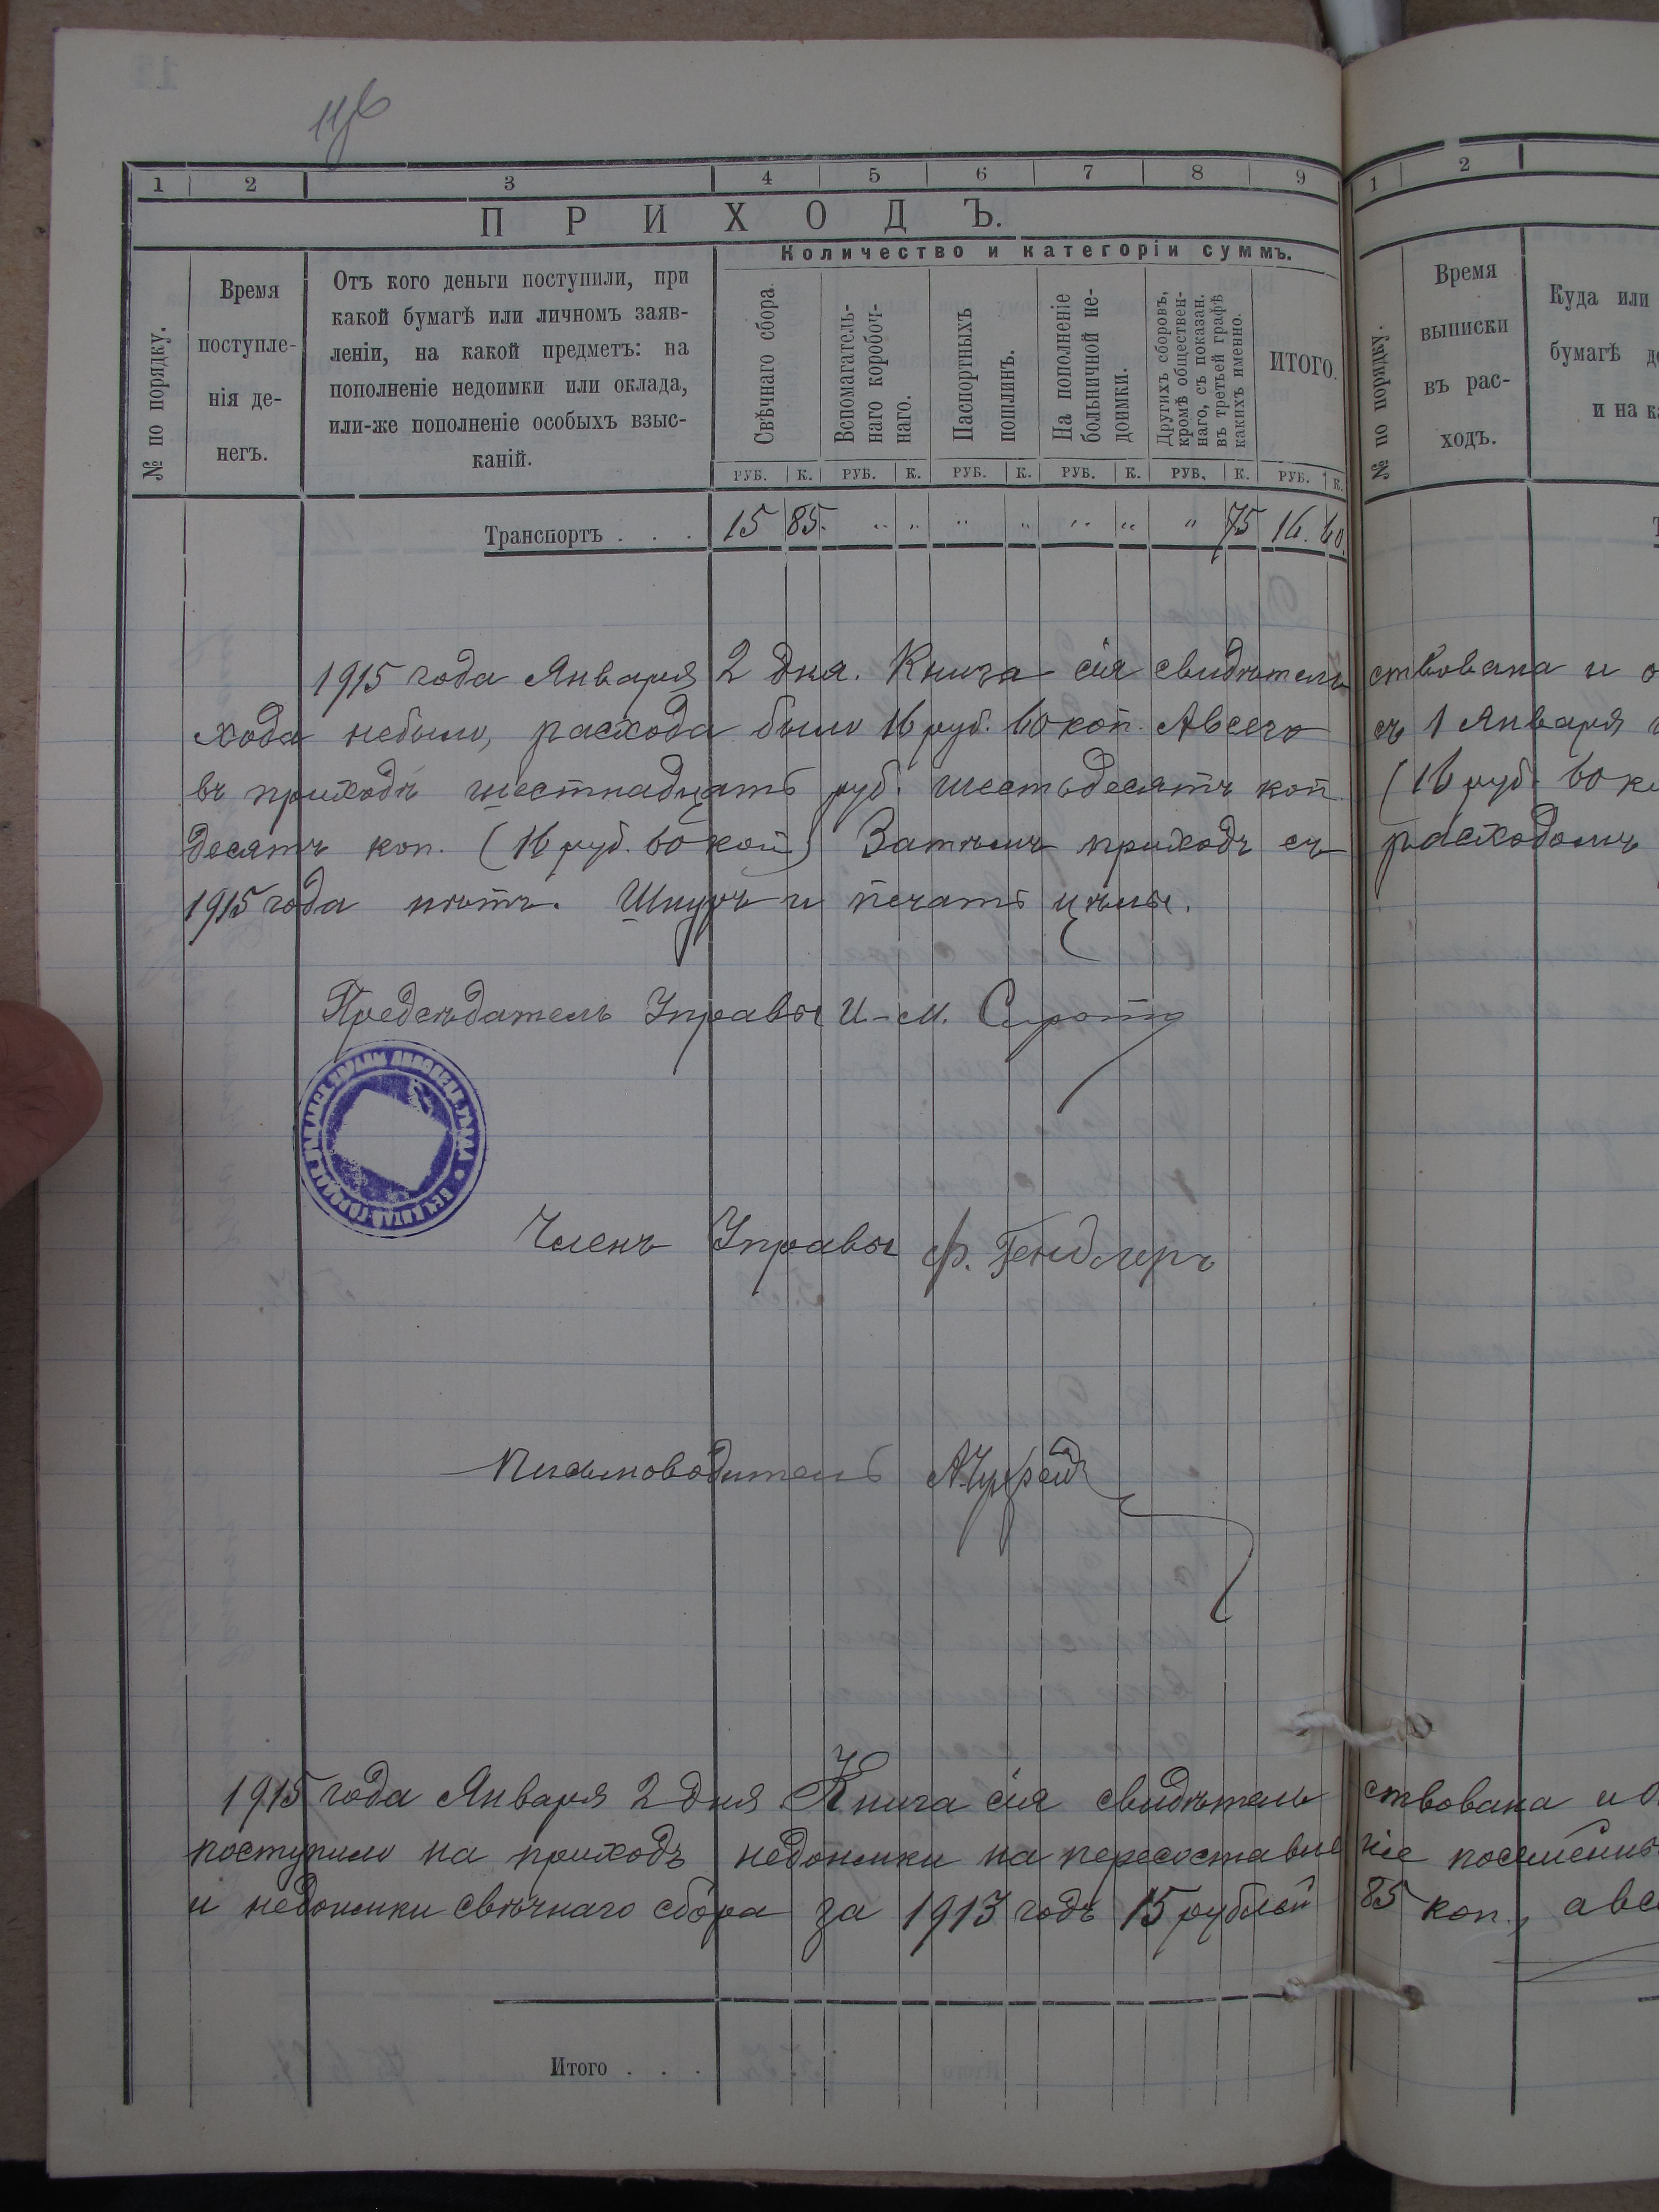 1 2 3 4 5 6 7 8 9
ПРИХОДЪ.
№ по порядку.
Время
поступле-
нія де-
негъ.
Отъ кого деньги поступили, при
какой бумагѣ или личномъ заяв-
леніи, на какой предметъ: на
пополненіе недоимки или оклада,
или-же пополненіе особыхъ взыс-
каній.
Количество и категоріи суммъ.
Свѣчнаго сбора.
Вспомагатель-
наго коробоч-
наго.
Паспортныхъ
пошлинъ.
На пополненіе
больничной не-
доимки.
Другихъ сборовъ,
кромѣ обществен-
наго, съ показан.
въ третьей графѣ
какихъ именно.
ИТОГО.
РУБ. К. РУБ. К. РУБ. К. РУБ. К. РУБ. К. РУБ. К.
Транспортъ . . . 15 85. " " " " " " " 75 16. 60.
1915 года Января 2 дня. Книга сія свидѣтель
хода небыло, расхода было 16 руб. 60 коп. Авсего
въ приходѣ шестнадцать руб. шестьдесятъ коп.
десятъ коп. (16 руб. 60 коп) Затѣмъ приходъ съ
1915 года нѣтъ. Шнуръ и печать цѣлы.
Предсѣдатель Управы И-М.
Членъ Управы Ф. Гендлеръ
Письмоводитель
1915 года Января 2 дня Книга сія свидѣтель
поступило на приходъ недоимки на пересоставле
и недоимки свѣчнаго сбора за 1913 годъ 15 рублей
Итого . . .
1 2
№ по порядку.
Время
выписки
въ рас-
ходъ.
Куда или
бумагѣ
и на
ствована и о
съ 1 Января
(16 руб. 60 ко
расходомъ
ствована и о
ніе
85 коп., авсе